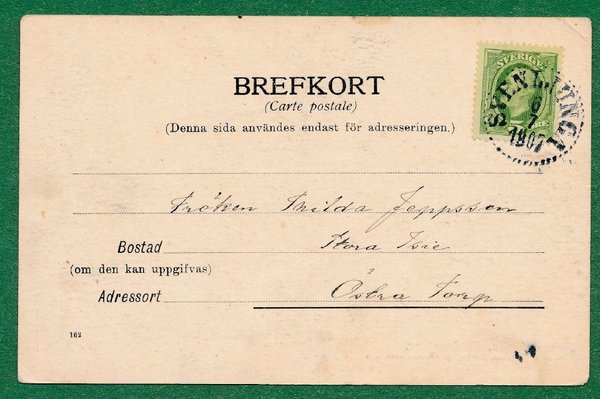 SVERIGE
SVENLJUNGA
6
7
1907
BREFKORT
(Carte postale)
(Denna sida användes endast för adresseringen.)
Fröken Thilda Jeppsson
Bostad Stora Isie
(om den kan uppgifvas)
Adressort Östra Torp
162